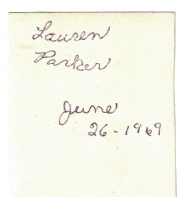 Lauren
Parker
June
26-1969